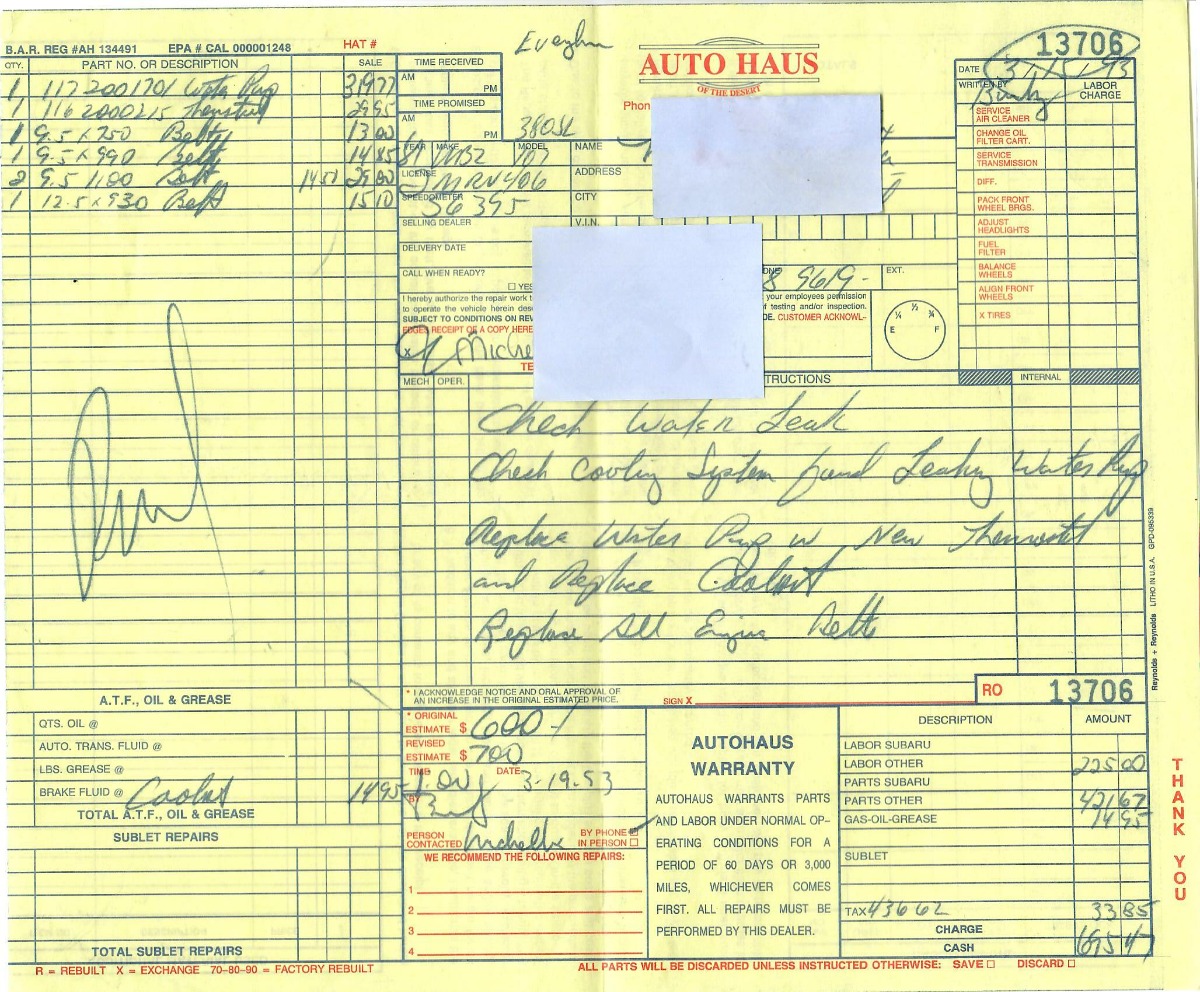 B.A.R. REG #AH 134491 EPA # CAL 000001248 HAT #
AUTO HAUS
OF THE DESERT
Phon
13706
QTY. PART NO. OR DESCRIPTION SALE
1 117 200 1701 Water Pup 319 77
1 116 2000215 Thermstat 29 95
1 9.5 x 750 Belt 13 00
1 9.5 x 990 Belt 14 85
2 9.5 1100 Belt 14 50 29 00
1 12.5 x 930 Belt 15 10
TIME RECEIVED
AM
PM
TIME PROMISED
AM
PM
380SL
YEAR MAKE MODEL
81 MBZ 107
LICENSE
2MRV406
SPEEDOMETER
56 395
SELLING DEALER
DELIVERY DATE
CALL WHEN READY?
YES
NAME
ADDRESS
CITY
V.I.N.
8 9619-
EXT.
I hereby authorize the repair work t
to operate the vehicle herein des
SUBJECT TO CONDITIONS ON REV
EDGES RECEIPT OF A COPY HERE
your employees permission
f testing and/or inspection.
E. CUSTOMER ACKNOWL-
X Miche
E ¼ ½ ¾ F
DATE 3/15/93
WRITTEN BY LABOR CHARGE
SERVICE AIR CLEANER
CHANGE OIL FILTER CART.
SERVICE TRANSMISSION
DIFF.
PACK FRONT WHEEL BRGS.
ADJUST HEADLIGHTS
FUEL FILTER
BALANCE WHEELS
ALIGN FRONT WHEELS
X TIRES
MECH OPER. TRUCTIONS INTERNAL
Check Water Leak
Check Cooling System found Leaking Water Pup
Replace Water Pup w New Thermostat
and Replace Coolant
Replace All Engine Belts
Reynolds + Reynolds LITHO IN U.S.A. GPD-095339
* I ACKNOWLEDGE NOTICE AND ORAL APPROVAL OF
AN INCREASE IN THE ORIGINAL ESTIMATED PRICE.
SIGN X
RO 13706
A.T.F., OIL & GREASE
QTS. OIL @
AUTO. TRANS. FLUID @
LBS. GREASE @
BRAKE FLUID @ Coolant 14 95
TOTAL A.T.F., OIL & GREASE
SUBLET REPAIRS
TOTAL SUBLET REPAIRS
* ORIGINAL ESTIMATE $ 600-
REVISED ESTIMATE $ 700
TIME 1.00 DATE 3-19-93
BY
PERSON CONTACTED Michelle BY PHONE
IN PERSON
WE RECOMMEND THE FOLLOWING REPAIRS:
1
2
3
4
AUTOHAUS
WARRANTY
AUTOHAUS WARRANTS PARTS
AND LABOR UNDER NORMAL OP-
ERATING CONDITIONS FOR A
PERIOD OF 60 DAYS OR 3,000
MILES, WHICHEVER COMES
FIRST. ALL REPAIRS MUST BE
PERFORMED BY THIS DEALER.
DESCRIPTION AMOUNT
LABOR SUBARU
LABOR OTHER 225 00
PARTS SUBARU
PARTS OTHER 421 67
GAS-OIL-GREASE 14 95
SUBLET
TAX 436 62 33 85
CHARGE
CASH 695 47
THANK YOU
R = REBUILT X = EXCHANGE 70-80-90 = FACTORY REBUILT
ALL PARTS WILL BE DISCARDED UNLESS INSTRUCTED OTHERWISE: SAVE DISCARD